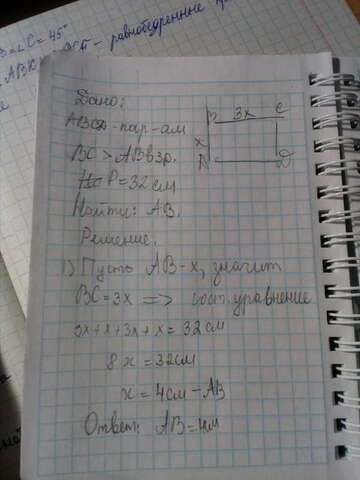 В = ∠C = 45°
равнобедренные
Дано:
ABCD-пар-ам
B 3x C
BC > AB в 3р.
x
A D
P = 32 см
Найти: AB.
Решение.
1) Пусть AB - x, значит
BC = 3x => сост. уравнение
3x+x+3x+x = 32 см
8x = 32см
x = 4см - AB
Ответ: AB = 4см